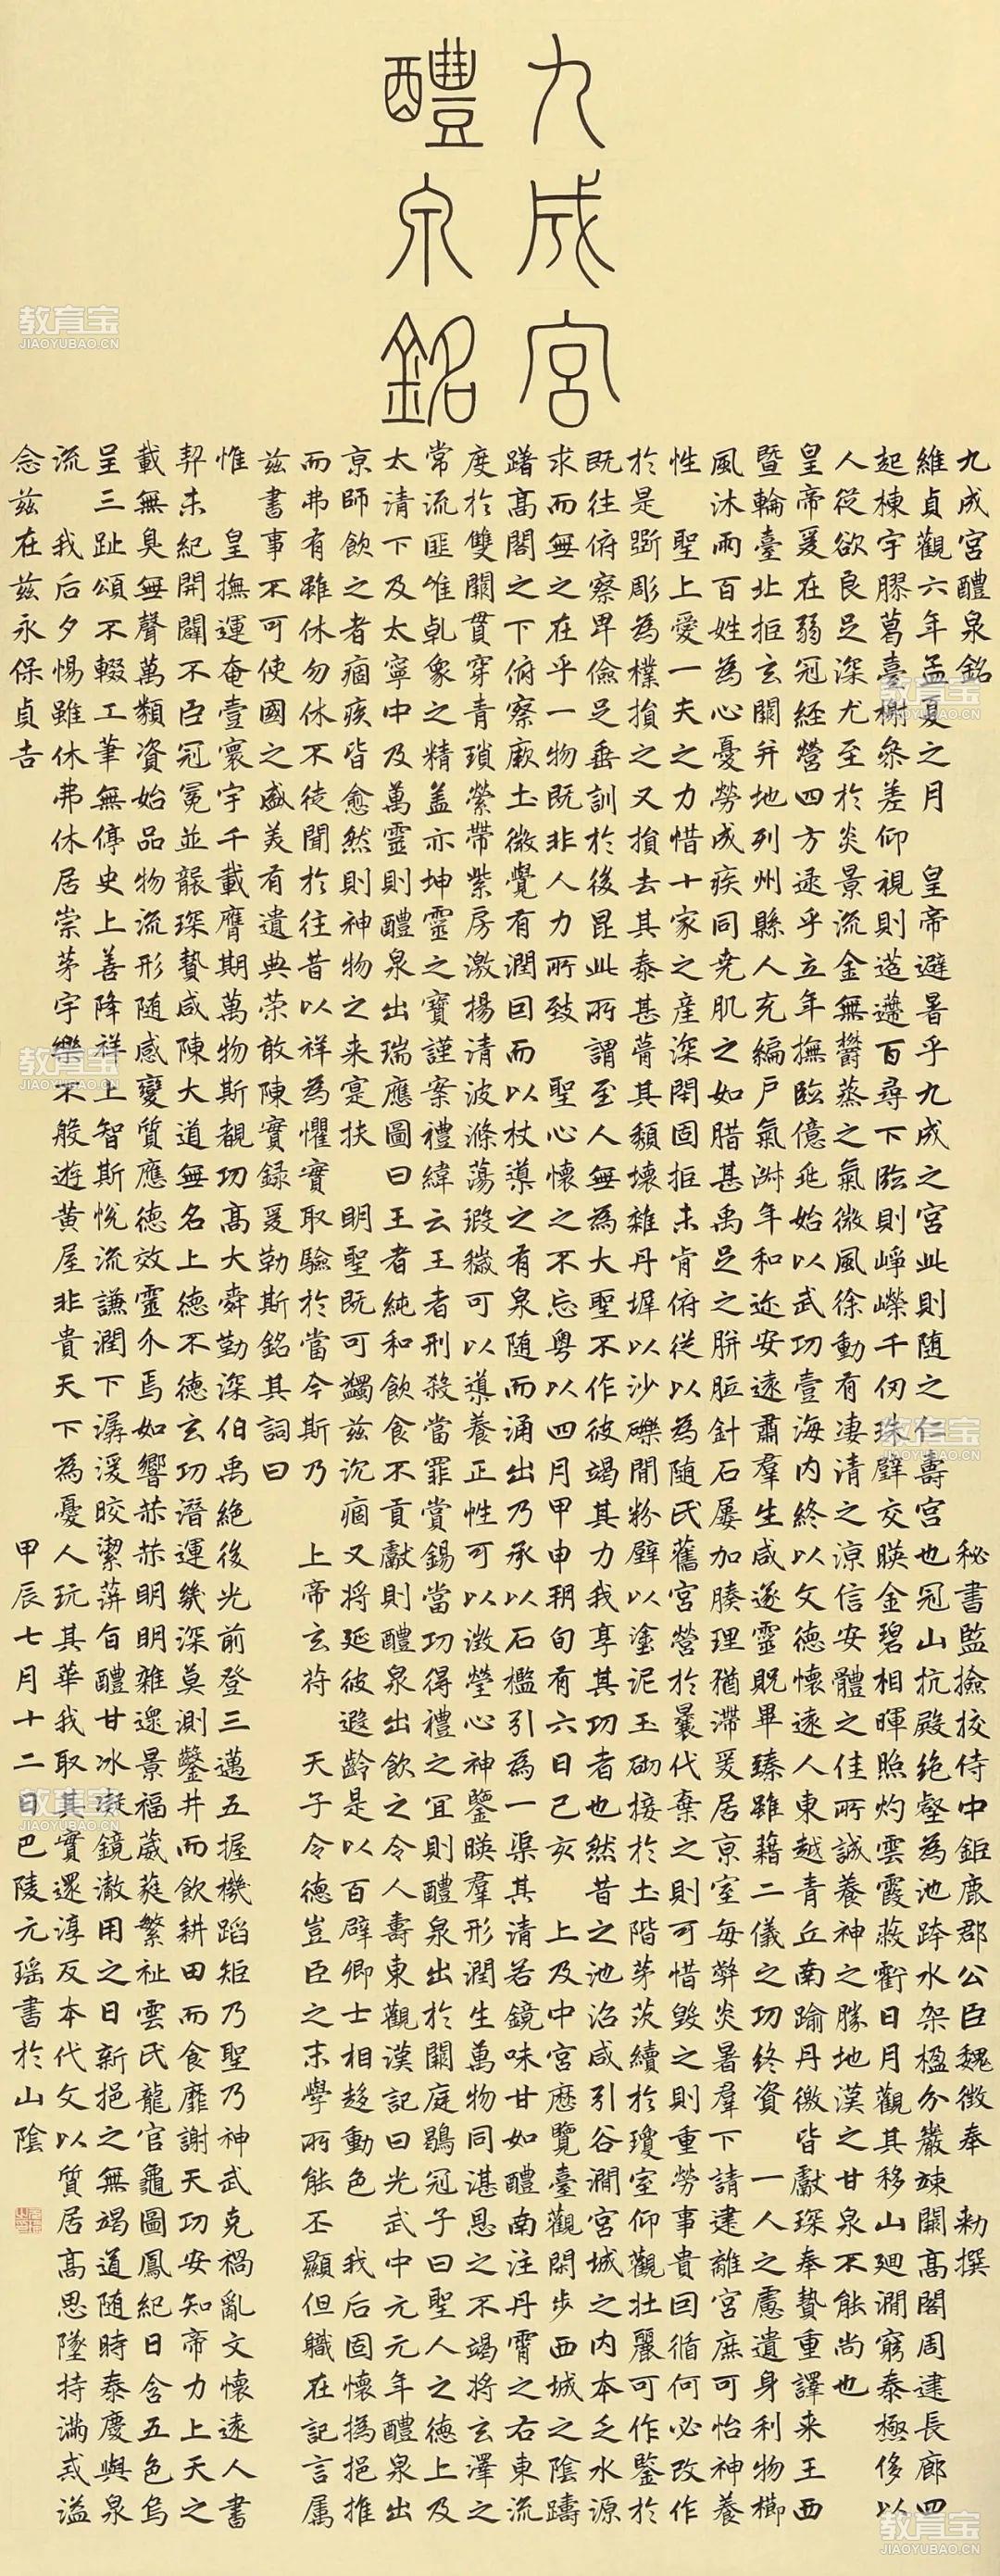 九成宮
醴泉銘
九成宮醴泉銘 秘書監撿挍侍中鉅鹿郡公臣魏徵奉 勅撰
維貞觀六年孟夏之月 皇帝避暑乎九成之宮此則随之仁壽宮也冠山抗殿絶壑為池跨水架楹分巖竦闕高閣周建長廊四
起棟宇膠葛臺榭叅差仰視則迢遰百尋下臨則崢嶸千仞珠璧交暎金碧相暉照灼雲霞蔽虧日月觀其移山廻澗窮泰極侈以
人従欲良足深尤至於炎景流金無欝蒸之氣微風徐動有凄清之涼信安體之佳所誠養神之勝地漢之甘泉不能尚也
皇帝爰在弱冠經營四方逮乎立年撫臨億兆始以武功壹海内終以文德懷遠人東越青丘南踰丹徼皆獻琛奉贄重譯来王西
暨輪臺北拒玄闕并地列州縣人充編戶氣淑年和迩安遠肅羣生咸遂靈貺畢臻雖藉二儀之功終資 一人之慮遺身利物櫛
風沐雨百姓為心憂勞成疾同堯肌之如腊甚禹足之胼胝針石屢加腠理猶滯爰居京室每弊炎暑羣下請建離宮庶可怡神養
性 聖上愛一夫之力惜十家之産深閉固拒未肯俯従以為随氏舊宮營於曩代棄之則可惜毀之則重勞事貴因循何必改作
於是斲彫為樸損之又損去其泰甚葺其頽壞雜丹墀以沙礫閒粉壁以塗泥玉砌接於土階茅茨續於瓊室仰觀壮麗可作鑒於
既往俯察卑儉足垂訓於後昆此所謂至人無為大聖不作彼竭其力我享其功者也然昔之池沼咸引谷澗宮城之内本乏水源
求而無之在乎一物既非人力所致 聖心懷之不忘粤以四月甲申朔旬有六日己亥 上及中宮歴覽臺觀閑步西城之陰躊
躇高閣之下俯察厥土微覺有潤因而以杖導之有泉随而涌出乃承以石檻引為一渠其清若鏡味甘如醴南注丹霄之右東流
度於雙闕貫穿青瑣縈帶紫房激揚清波滌蕩瑕穢可以導養正性可以澂瑩心神鑒暎羣形潤生萬物同湛恩之不竭將玄澤之
常流匪唯乹象之精盖亦坤靈之寶謹案禮緯云王者刑殺當罪賞錫當功得禮之宜則醴泉出於闕庭鶡冠子曰聖人之德上及
太清下及太寧中及萬靈則醴泉出瑞應圖曰王者純和飲食不貢獻則醴泉出飲之令人壽東觀漢記曰光武中元元年醴泉出
京師飲之者痼疾皆愈然則神物之来寔扶 明聖既可蠲兹沉痼又將延彼遐齡是以百辟卿士相趍動色我后固懷撝挹推
而弗有雖休勿休不徒聞於往昔以祥為懼實取驗於當今斯乃 上帝玄符 天子令德豈臣之末學所能丕顯但職在記言属
兹書事不可使國之盛美有遺典荣敢陳實録爰勒斯銘其詞曰
惟 皇撫運奄壹寰宇千載膺期萬物斯覩功高大舜勤深伯禹絶後光前登三邁五握機蹈矩乃聖乃神武克禍亂文懷遠人書
契未紀開闢不臣冠冕並襲琛贄咸陳大道無名上德不德玄功潛運幾深莫測鑿井而飲耕田而食靡謝天功安知帝力上天之
載無臭無聲萬類資始品物流形随感變質應德效靈介焉如響赫赫明明雜遝景福葳蕤繁祉雲氏龍官龜圖鳳紀日含五色烏
呈三趾頌不輟工筆無停史上善降祥上智斯悅流謙潤下潺湲皎潔蓱旨醴甘冰凝鏡澈用之日新挹之無竭道随時泰慶與泉
流我后夕惕雖休弗休居崇茅宇樂不般遊黄屋非貴天下為憂人玩其華我取其實還淳反本代文以質居高思墜持滿戒溢
念兹在兹永保貞吉 甲辰七月十二日巴陵元瑶書於山陰
教育宝
JIAOYUBAO.CN